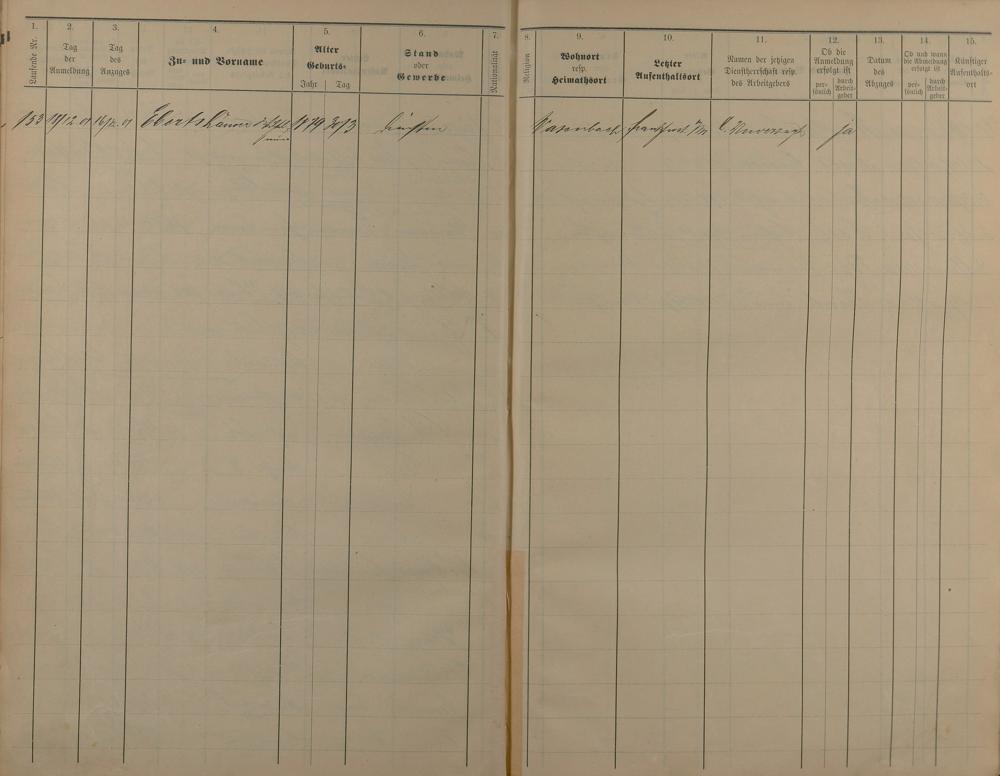 1. 2. 3. 4. 5. 6. 7. 8. 9. 10. 11. 12. 13. 14. 15.
Laufende Nr.
Tag
der
Anmeldung
Tag
des
Anzuges
Zu- und Vorname
Alter
Geburts-
Jahr Tag
Stand
oder
Gewerbe
Nationalität
Religion
Wohnort
resp.
Heimathsort
Letzter
Aufenthaltsort
Namen der jetzigen
Dienstherrschaft resp.
des Arbeitgebers
Ob die
Anmeldung
erfolgt ist
per-
sönlich
durch
Arbeit-
geber
Datum
des
Abzuges
Ob und wann
die Abmeldung
erfolgt ist
per-
sönlich
durch
Arbeit-
geber
Künftiger
Aufenthalts-
ort
153 17/12 01 16/12 01 Ebertshäuser 1879 30/3 Wasenbach Frankfurt a/M ja